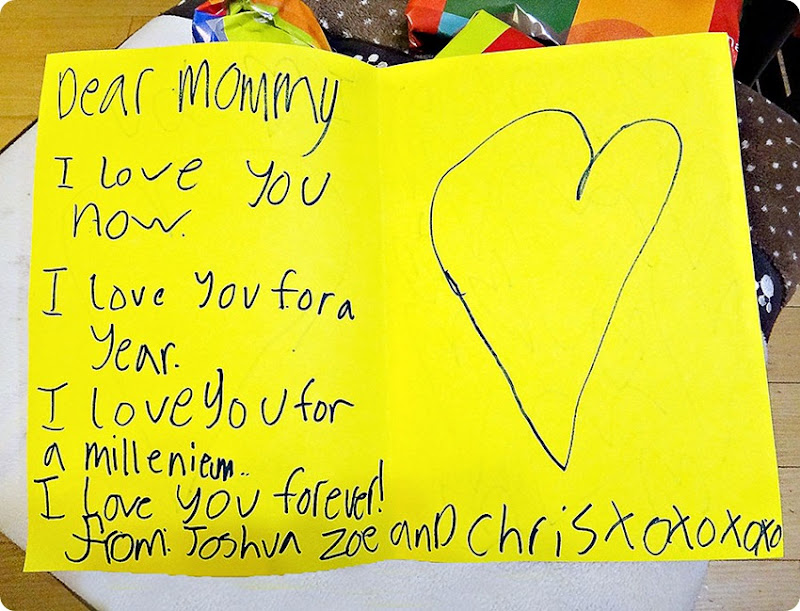 Dear Mommy
I love you
now.
I love you for a
year.
I love you for
a millenieum..
I Love you forever!
From: Joshua Zoe and Chris xoxoxoxo